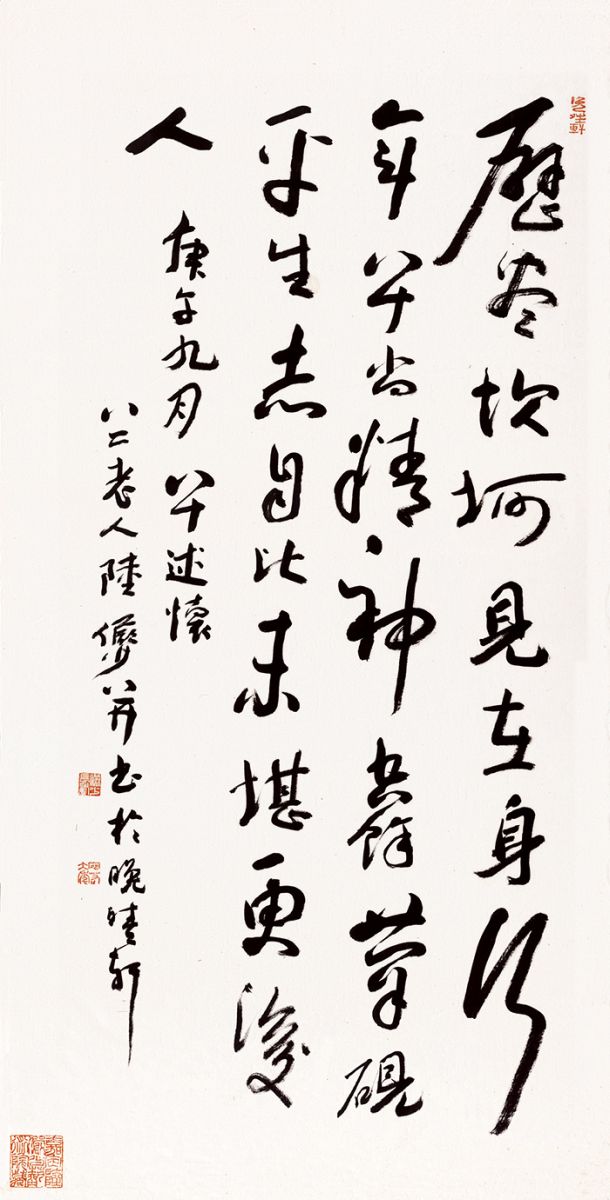 歷盡坎坷見在身行
年八十尚精神餘筆硯
平生志自比未堪更後
人 庚午九月 八十述懷
八二老人陸儼少并書於晚晴軒